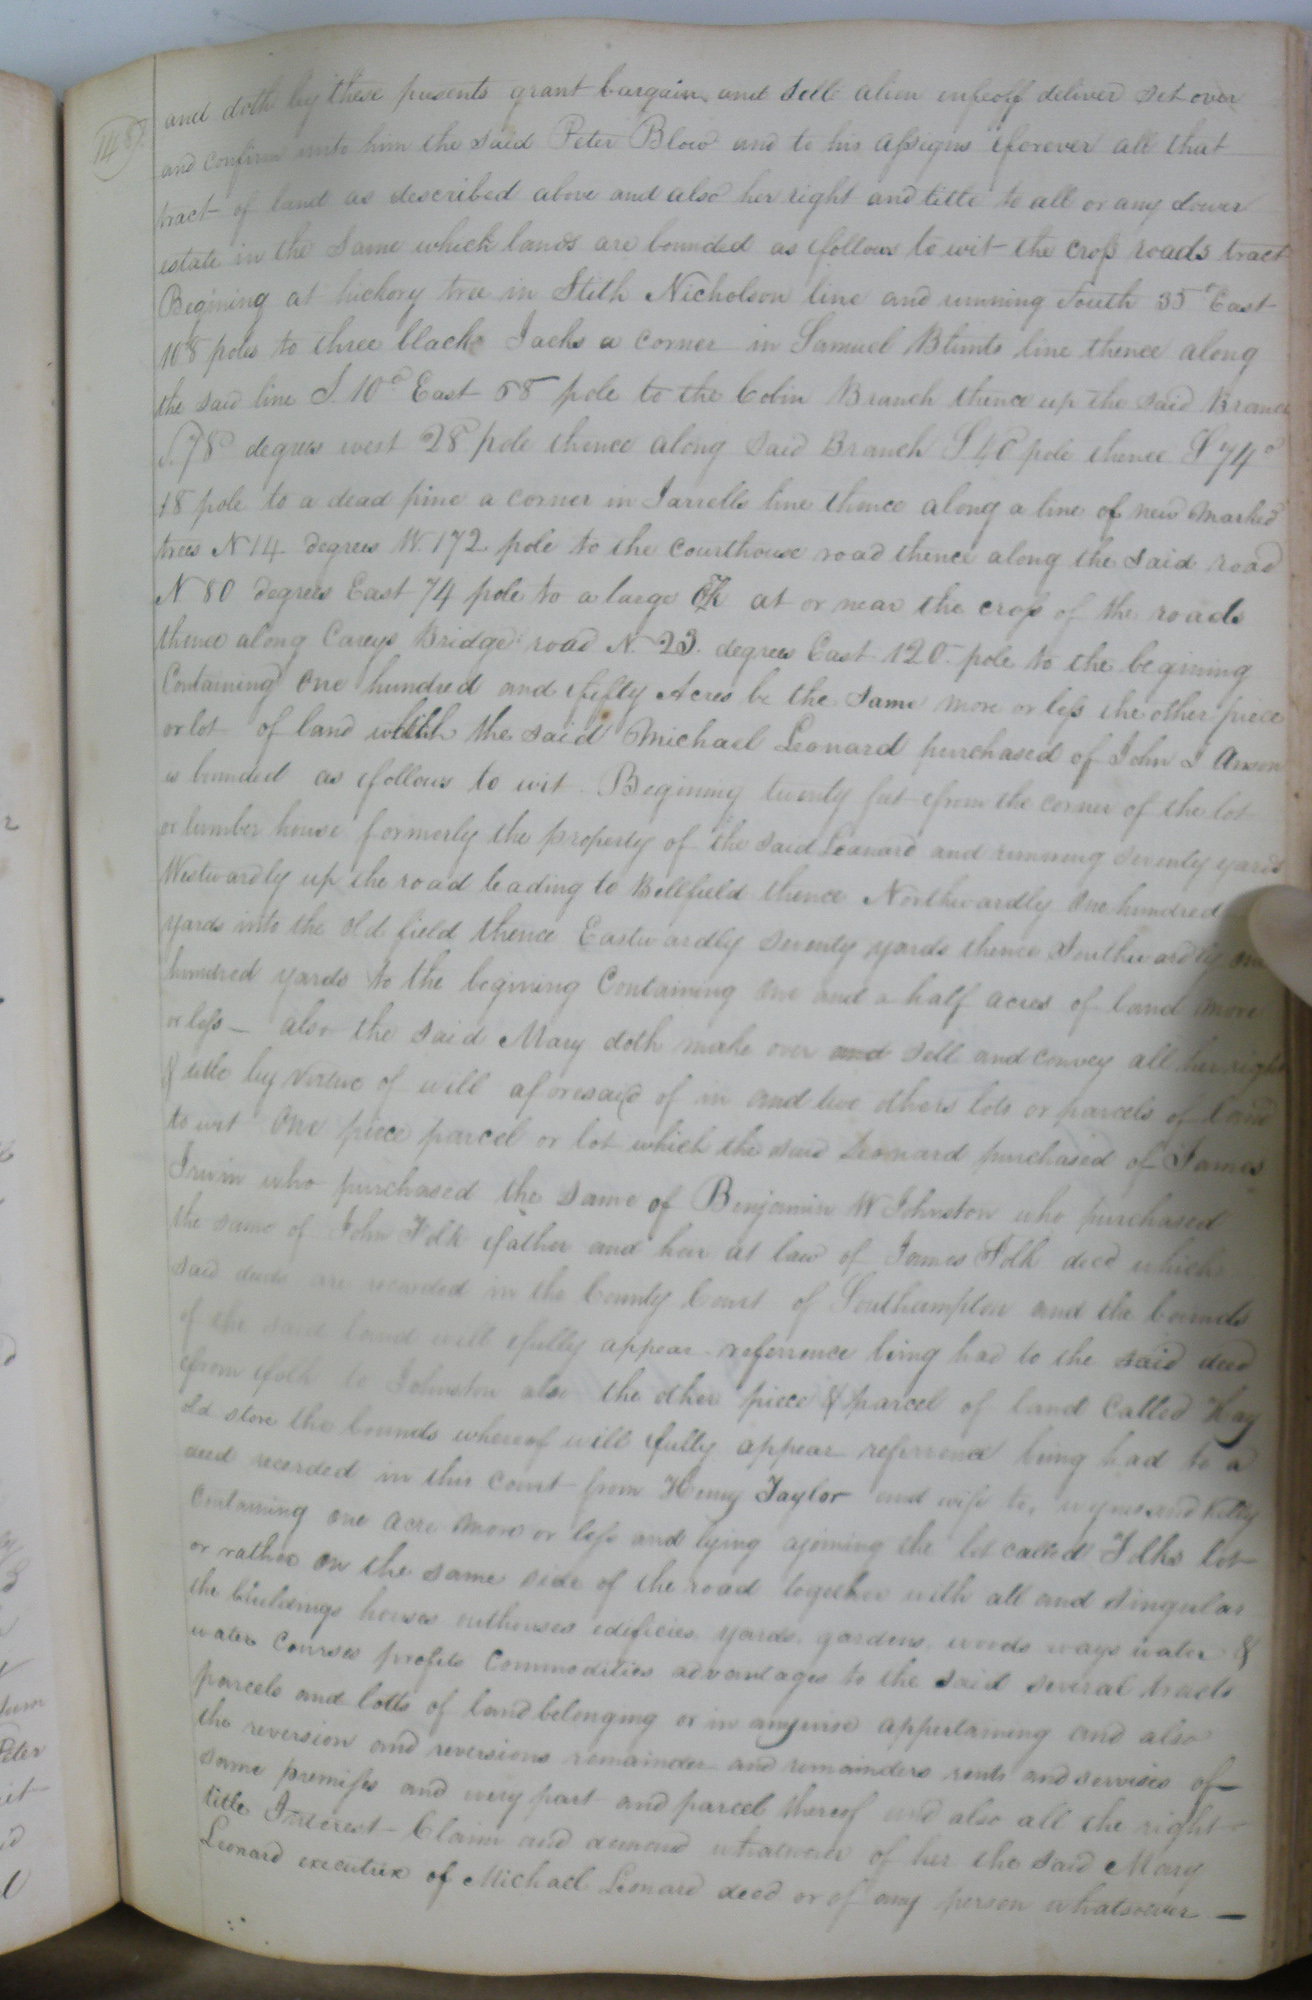 148
and doth by these presents grant bargain and sell alien enfeoff deliver set over
and confirm unto him the said Peter Blow and to his assigns forever all that
tract of land as described above and also her right and title to all or any dower
estate in the same which lands are bounded as follows to wit the cross roads tract
Begining at hickory tree in Stith Nicholson line and running South 35° East
108 poles to three black Jacks a corner in Samuel Blunts line thence along
the said line S. 10° East 58 pole to the Cobin Branch thence up the said Branch
S. 78° degrees west 28 pole thence along said Branch S. 40 pole thence S 74°
18 pole to a dead pine a corner in Jarrells line thence along a line of new marked
trees N 14 degrees W. 172 pole to the courthouse road thence along the said road
N 80 degrees East 74 pole to a large at or near the cross of the roads
thence along Careys Bridge road N. 23. degrees East 120 pole to the begining
Containing One hundred and fifty Acres be the same more or less the other piece
or lot of land which the said Michael Leonard purchased of John I
is bounded as follows to wit Begining twenty feet from the corner of the lot
or lumber house formerly the property of the said Leonard and running seventy yards
Westwardly up the road leading to Bellfield thence Northwardly One hundred
yards into the old field thence Eastwardly seventy yards thence Southwardly one
hundred yards to the begining Containing one and a half acres of land more
or less — also the said Mary doth make over and sell and convey all her right
& title by virtue of will aforesaid of in and two others lots or parcels of land
to wit One piece parcel or lot which the said Leonard purchased of James
Irwin who purchased the same of Benjamin W Johnston who purchased
the same of John Folk father and heir at law of James Folk decd which
said deeds are recorded in the County Court of Southampton and the bounds
of the said land will fully appear reference being had to the said deed
from folk to Johnston also the other piece & parcel of land called Hay
old store the bounds whereof will fully appear reference being had to a
deed recorded in this court from Henry Taylor and wife to, and Kelly
Containing one acre more or less and lying ajoining the lot called Folks lot
or rather on the same side of the road together with all and singular
the buildings houses outhouses edificies yards, gardens, woods ways water &
water courses profits commodities advantages to the said several tracts
parcels and lotts of land belonging or in anywise appertaining and also
the reversion and reversions remainder and remainders rents and servises of
same premises and every part and parcel thereof and also all the right
title Interest Claim and demand whatsoever of her the said Mary
Leonard executrix of Michael Leonard decd or of any person whatsoever —